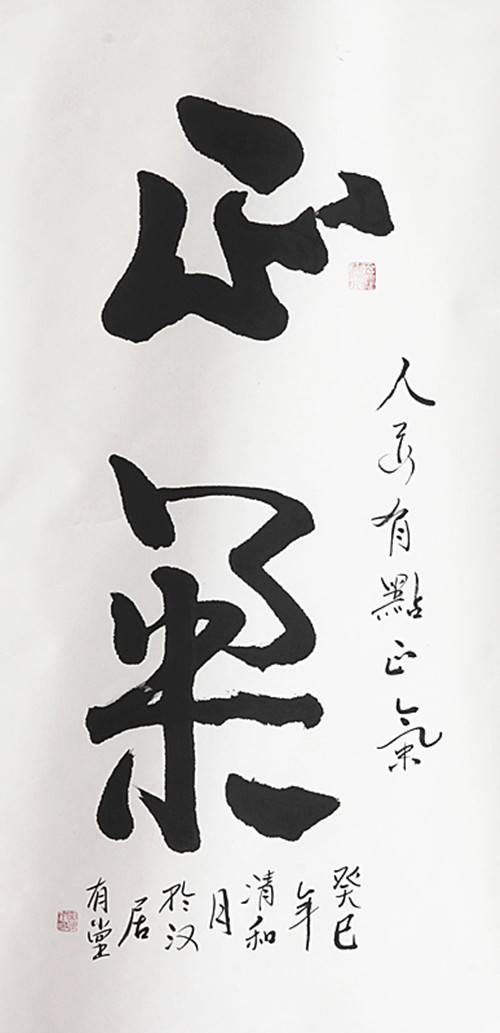 正氣
人要有點正氣
癸巳
年
清和
月
於汉
居
有堂